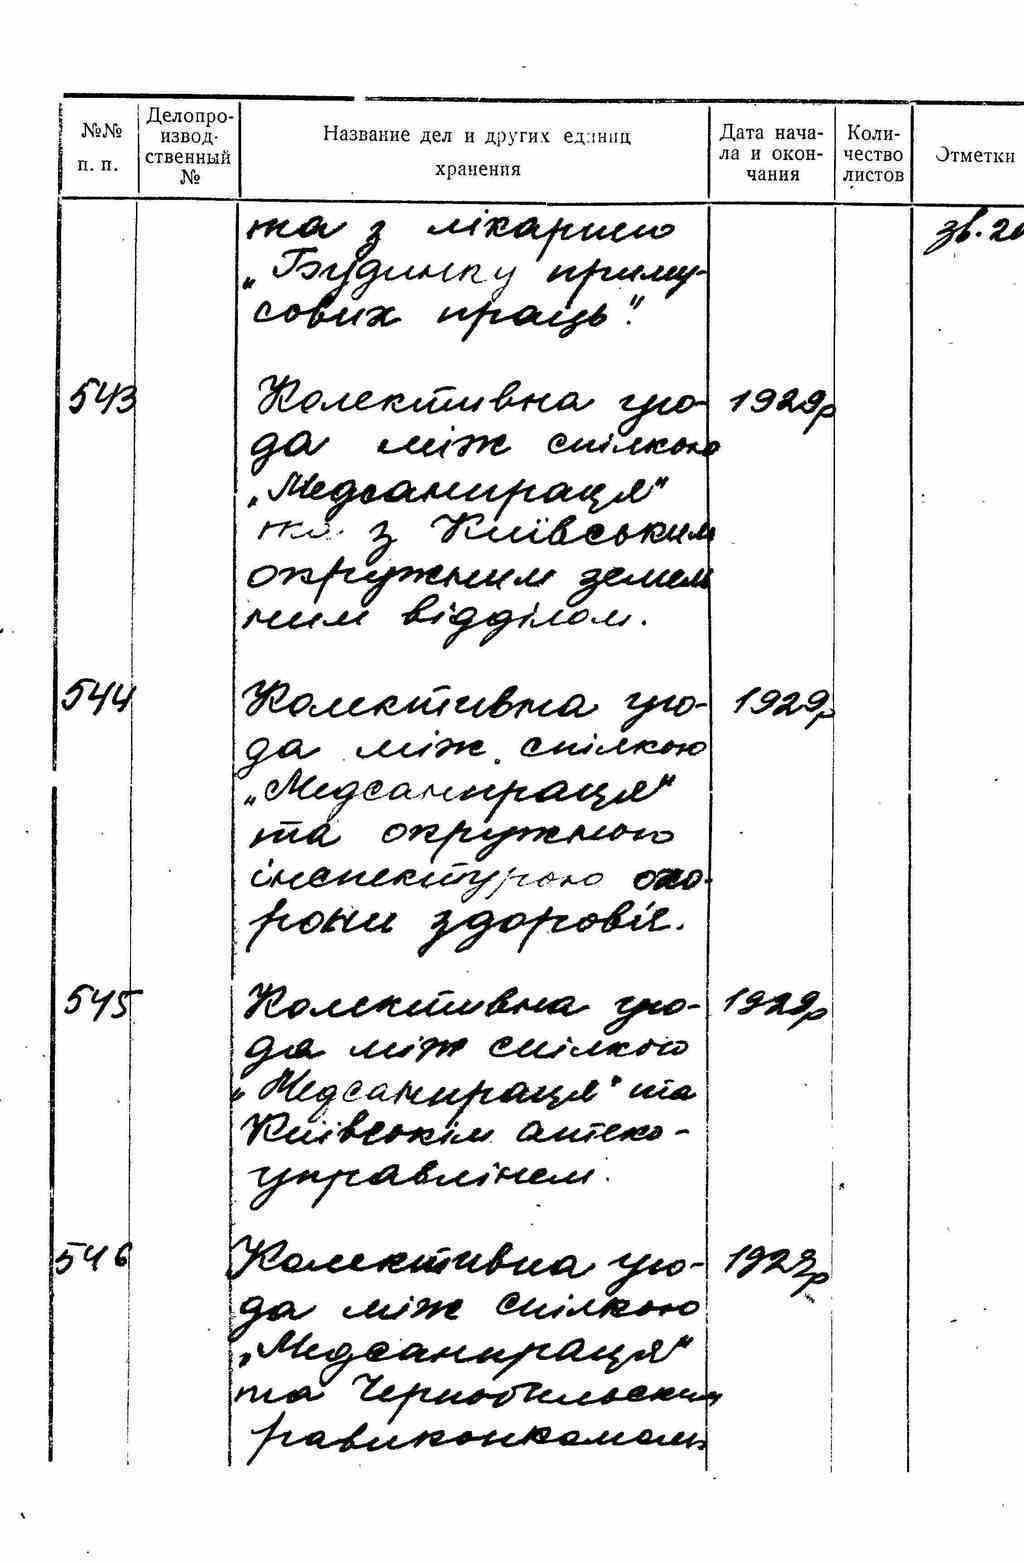 №№ п. п.
Делопро-
извод-
ственный
№
Название дел и других единиц
хранения
Дата нача-
ла и окон-
чания
Коли-
чество
листов
Отметки
та з лікарнею
зв. 20
„Будинку приму-
сових праць".
543 Колективна уго- 1929р
да між спілкою
„Медсанпраця"
та з Київським
окружним земель
ним відділом.
544 Колективна уго- 1929р
да між спілкою
„Медсанпраця"
та окружною
інспектурою охо-
рони здоров'я.
545 Колективна уго- 1929р
да між спілкою
„Медсанпраця" та
Київськім аптеко-
управлінем.
546 Колективна уго- 1929р
да між спілкою
„Медсанпраця"
та Чернобильским
равиконкомом